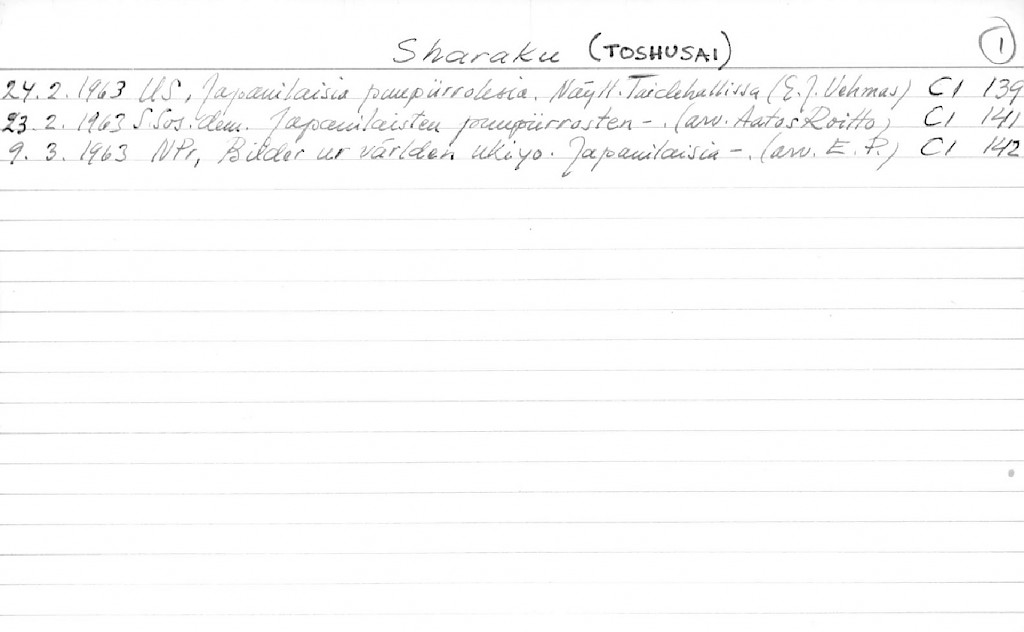 Sharaku (TOSHUSAI) 1
24. 2. 1963 US, Japanilaisia puupiirroksia. Näytt. Taidehallissa (E. J. Vehmas) CI 139
23. 2. 1963 S Sos. dem. Japanilaisten puupiirrosten -. (arv. Aatos Roitto) CI 141
9. 3. 1963 NPr, Bilder ur världen ukiyo. Japanilaisia -. (arv. E. P.) CI 142